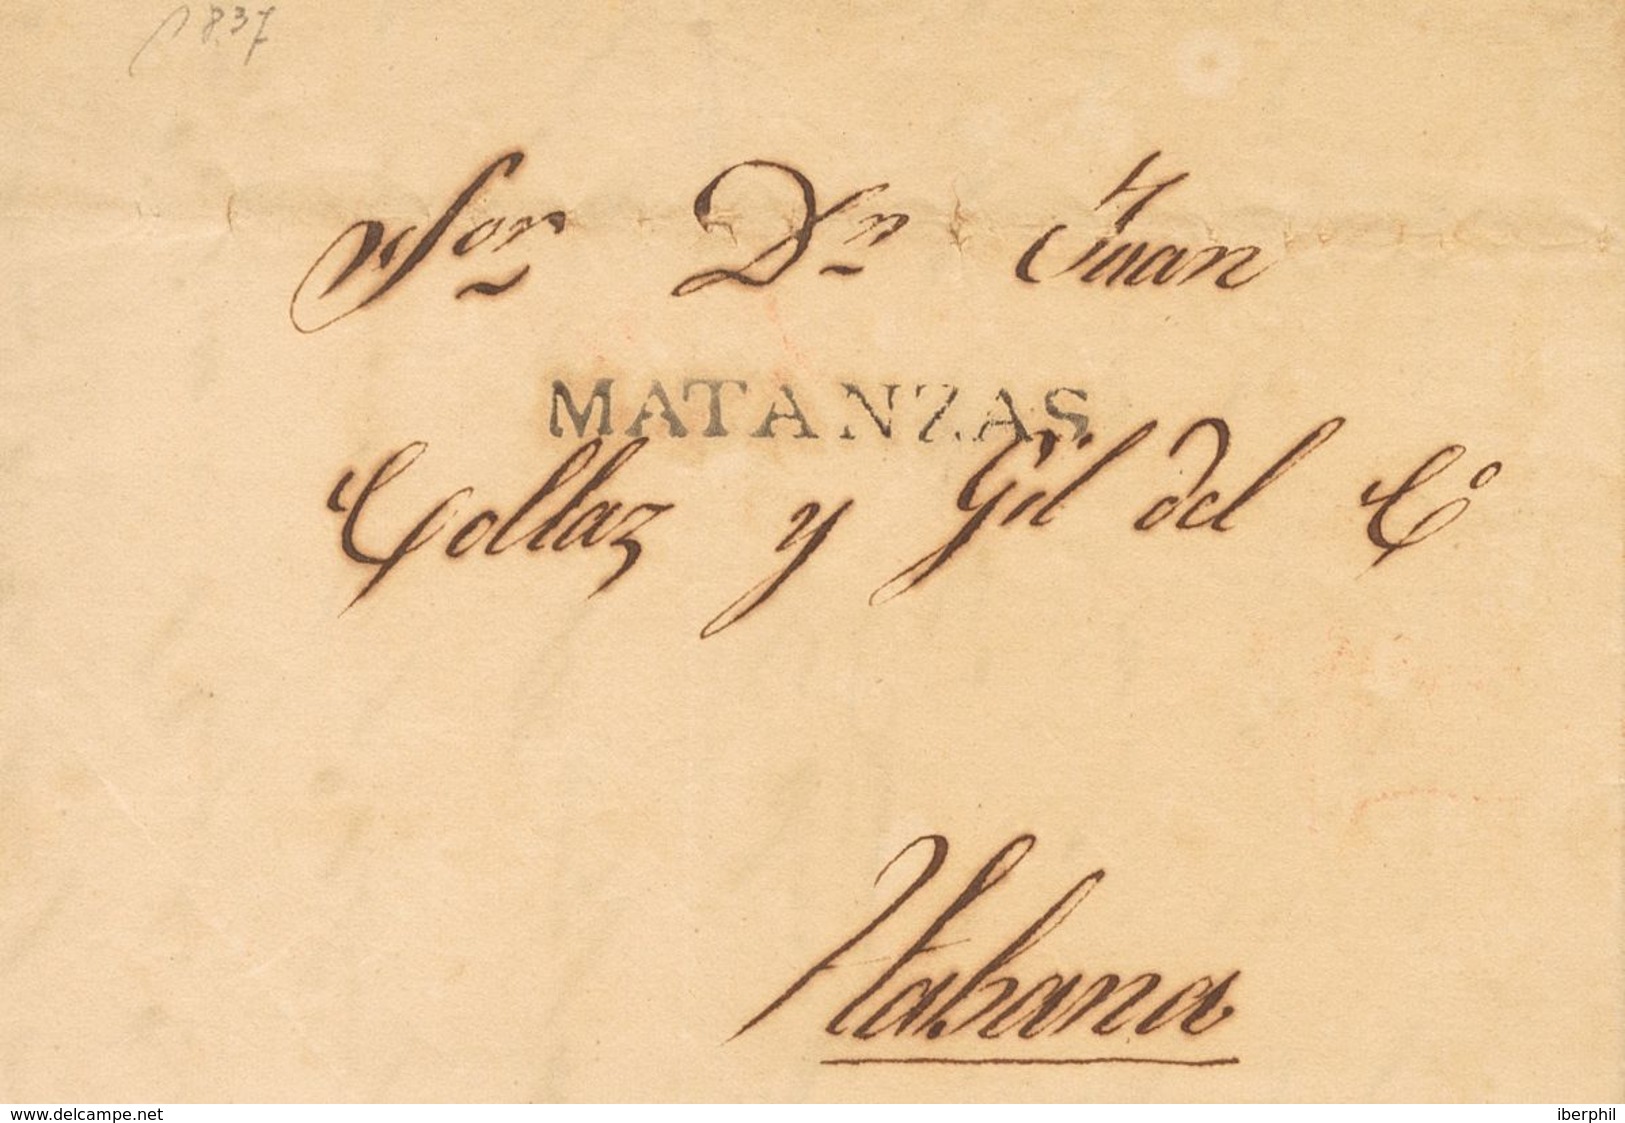 1837
Sor Dn Juan
MATANZAS
Collaz y Gil del Co
Habana
www.delcampe.net
iberphil